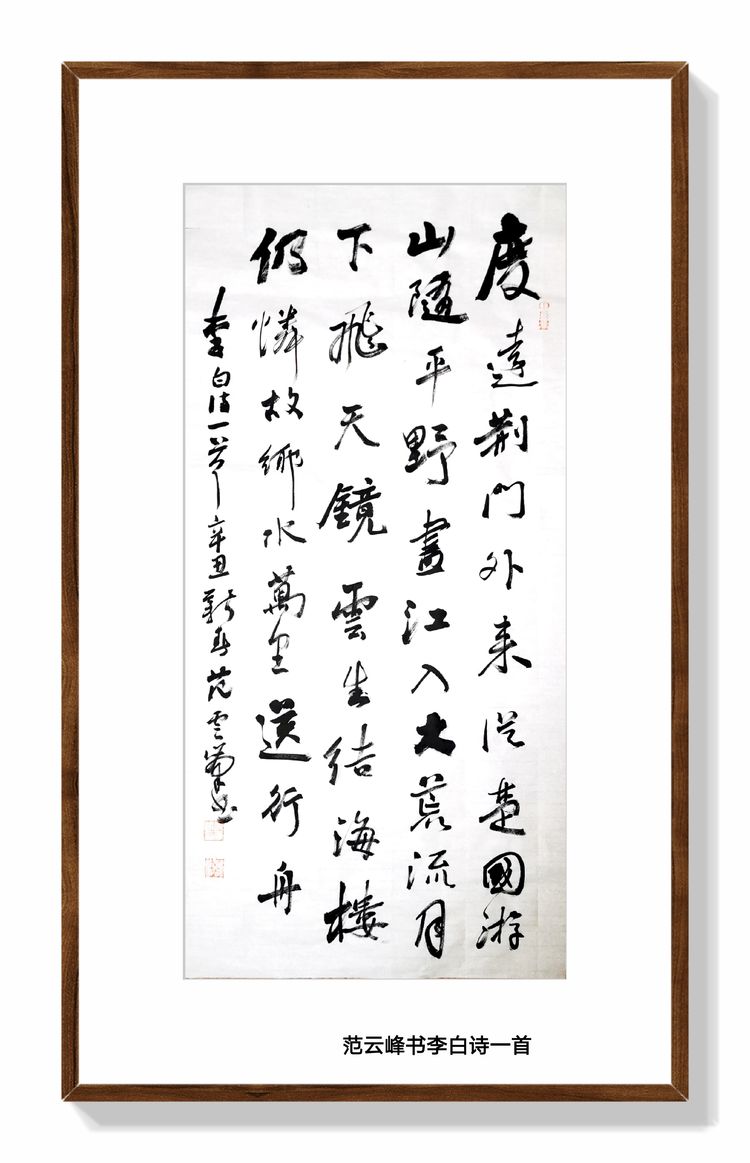 度遠荆門外来從楚國游
山隨平野盡江入大荒流月
下飛天鏡雲生结海樓
仍憐故鄉水萬里送行舟
李白诗一首 辛丑新春 范雲峯书
范云峰书李白诗一首